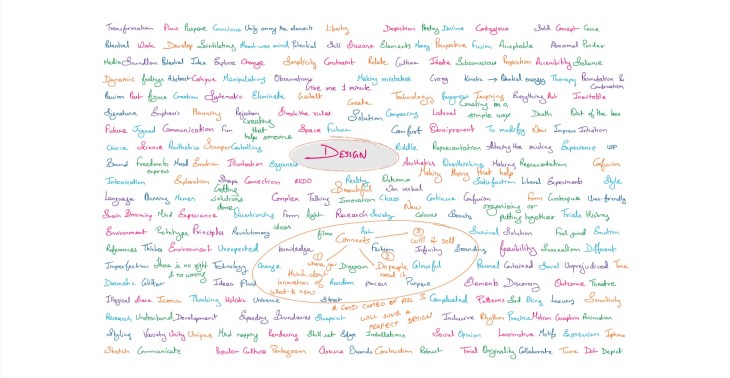 Transformation Flow Purpose Conscious Unity among the elements Liberty Depiction Poetry Divine Contagious Bold Concept Cause
Potential Work Develop Potential Skill Dreams Elements Perspective Fusion Acceptable Abnormal Ponder
Media Soundless Potential Idea Explore Change Simplicity Constraint Relate Culture Ideate Subconscious Proportion Accessibility Balance
Dynamic feelings Abstract Critique Manipulating Observations Making mistakes Crazy Kinetic → Potential energy Therapy Permutation &
Combination
Passion Past figure Creation Systematic Eliminate Gestalt Give me 1 minute Create Technology Progress Inspiring Everything Art Inevitable
Signature Emphasis Planning Rejection Break the rules Solution Composing Lateral Creating in a
simple way Death Out of the box
Future Signal Communication Fun Creating
that
help someone Space Future Comfort Environment To modify New Improv Intuition
Choice Science Aesthetics Controlling DESIGN Riddle Representation Altering the existing Experience
Bound Freedom to
express Mood Emotion Illustration Aesthetics Overthinking Making Representation Confusion
Intoxication Exploration Shape Connection REDO Reality Outcome Making things that help Satisfaction Liberal Experiments Style
Language Planning Memes Getting
solutions
done Complex Talking Beautiful Innovation Chaos Non verbal Critique Confusion Form Grotesque User-friendly
Brain Storming Mind Experience Questioning Form Light Research Society Colours New Senate organising or
putting together Trials History
Environment Prototype Principles Revolutionary ideas films Ask Survival Solution Feel good Emotion
References Thinker Environment Unexpected knowledge Comments Fashion ③ will it sell Infinity Branding feasibility Surrealism Different
Imperfection There is no right
& no wrong Technology Change ① where you
think about
innovation of
what is new Diagram ② Do people
need it Colourful Paused Contained Social Unprejudiced Tone
Domestic Glitter Ideas Fluid Random process Purpose Elements Discovery Outcome Theatre
Illogical Space Iconic Thinking Holistic Universe Street A good combo of all 3
will give a
perfect design Complicated Patterns Sad Being Luxury Sensitivity
Research Understand Development Expanding Boundaries Blueprint Inclusive Rhythm Practice Motion Graphics Animation
Styling Variety Unity Unique Mind mapping Rendering Skill set Edge Installations Social Opinion Locomotive Motifs Expression Iphone
Sketch Communicate Popular Culture Pentagram Closure Brands Construction Robust Trial Originality Collaborate Time Dot Depict